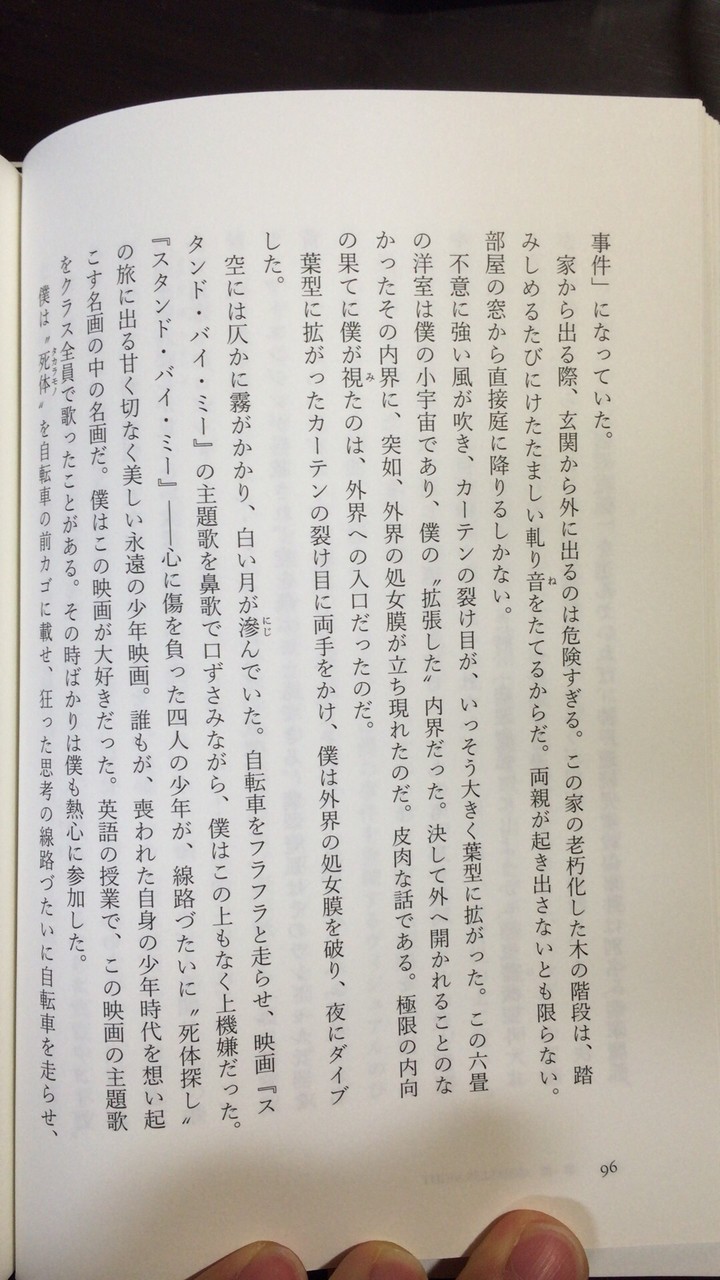 事件」になっていた。
家から出る際、玄関から外に出るのは危険すぎる。この家の老朽化した木の階段は、踏
みしめるたびにけたたましい軋り音をたてるからだ。両親が起き出さないとも限らない。
部屋の窓から直接庭に降りるしかない。
不意に強い風が吹き、カーテンの裂け目が、いっそう大きく葉型に拡がった。この六畳
の洋室は僕の小宇宙であり、僕の〝拡張した〟内界だった。決して外へ開かれることのな
かったその内界に、突如、外界の処女膜が立ち現れたのだ。皮肉な話である。極限の内向
の果てに僕が視たのは、外界への入口だったのだ。
葉型に拡がったカーテンの裂け目に両手をかけ、僕は外界の処女膜を破り、夜にダイブ
した。
空には仄かに霧がかかり、白い月が滲んでいた。自転車をフラフラと走らせ、映画『ス
タンド・バイ・ミー』の主題歌を鼻歌で口ずさみながら、僕はこの上もなく上機嫌だった。
『スタンド・バイ・ミー』――心に傷を負った四人の少年が、線路づたいに〝死体探し〟
の旅に出る甘く切なく美しい永遠の少年映画。誰もが、喪われた自身の少年時代を想い起
こす名画の中の名画だ。僕はこの映画が大好きだった。英語の授業で、この映画の主題歌
をクラス全員で歌ったことがある。その時ばかりは僕も熱心に参加した。
僕は〝死体〟を自転車の前カゴに載せ、狂った思考の線路づたいに自転車を走らせ、
ね
み
にじ
タカラモノ
96